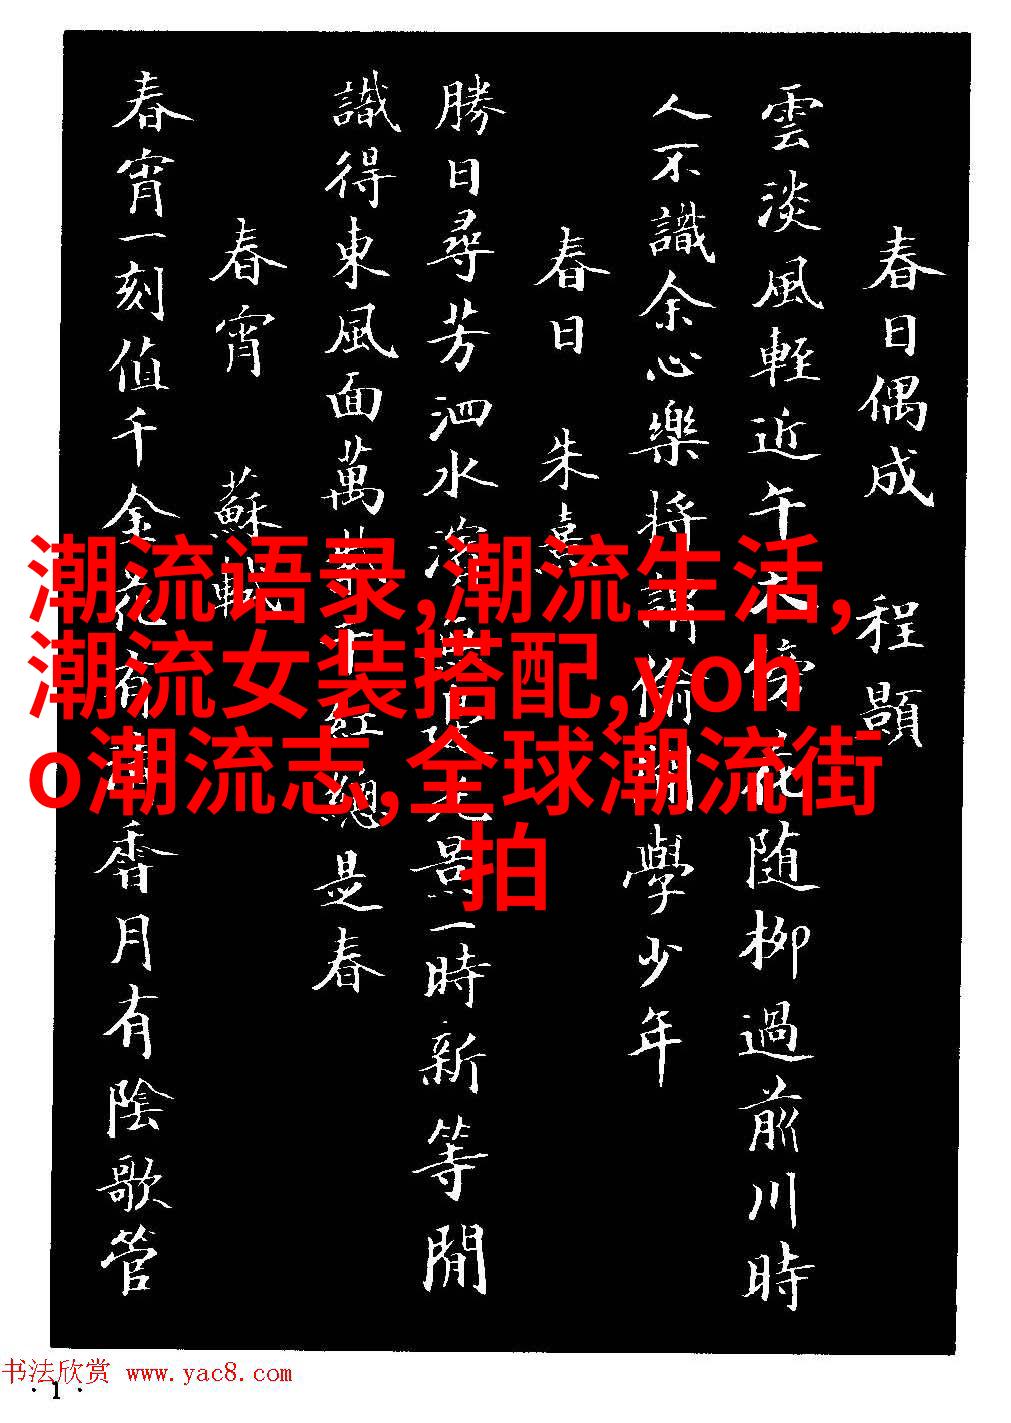 春日偶成 程顥
雲淡風輕近午天傍花随柳過前川時
人不識余心樂將謂偷閒學少年
春日 朱熹
勝日尋芳泗水濱無邊光景一時新等閒
識得東風面萬紫千紅總是春
春宵 蘇軾
春宵一刻值千金花有清香月有陰歌管
潮流语录,潮流生活,
潮流女装搭配,yoh
o潮流志,全球潮流街
拍
书法欣赏 www.yac8.com
·1·